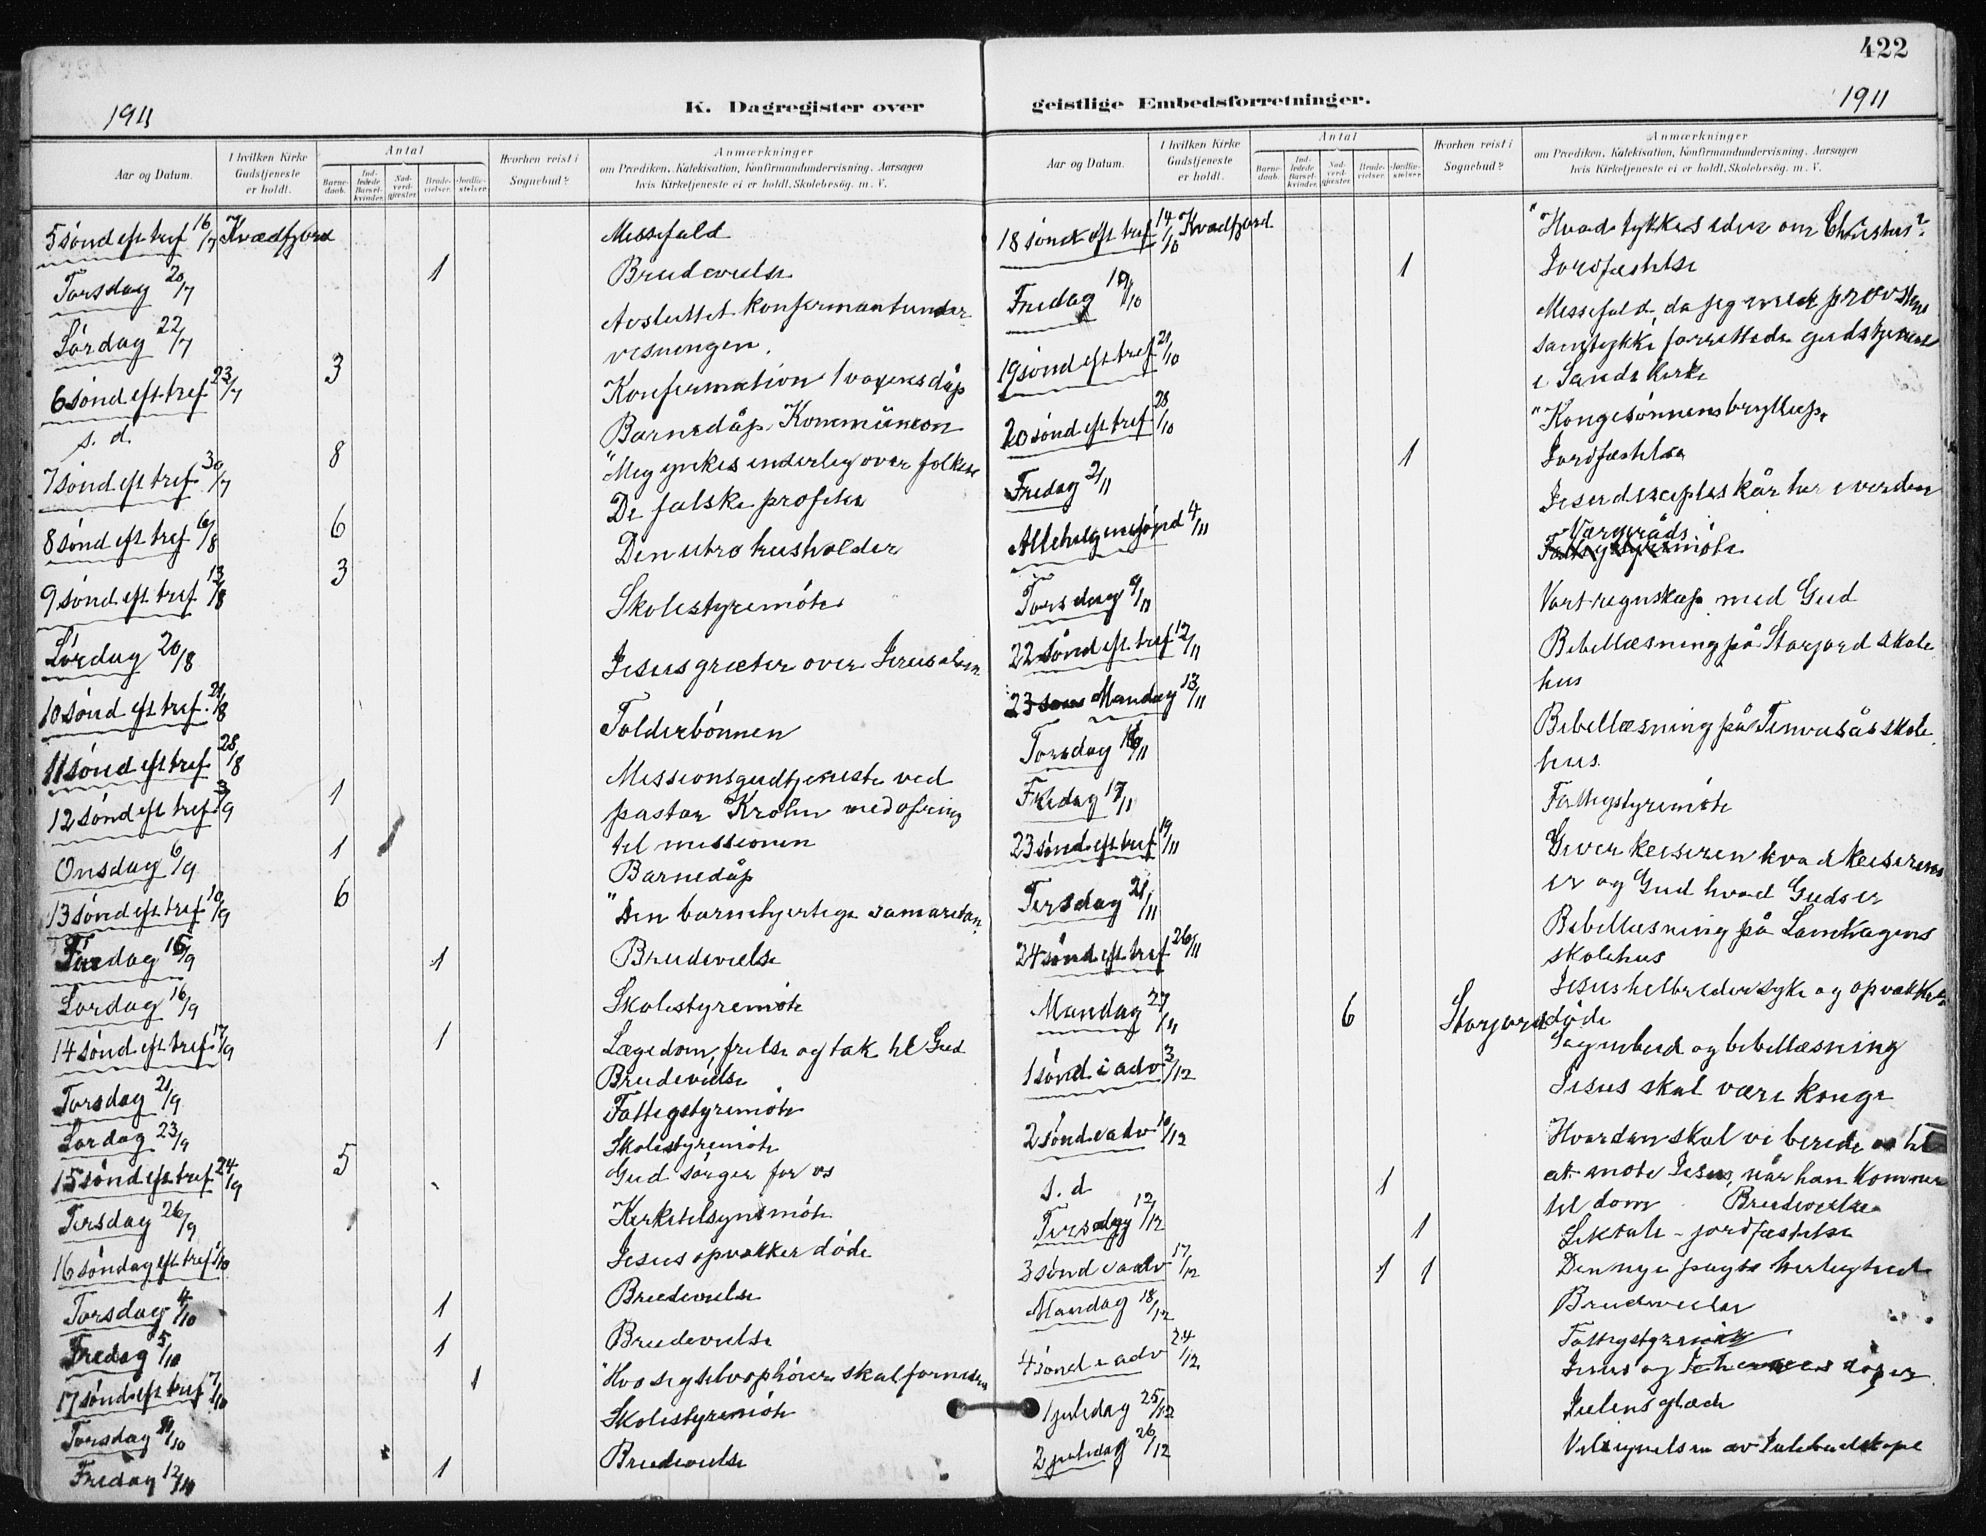 422
1911
K. Dagregister over
geistlige Embedsforretninger.
1911
Aar og Datum.
I hvilken Kirke Gudstjeneste er holdt.
Antal
Barne-daab.
Ind-ledede Barsel-kvinder.
Nad-verd-gjæster.
Brude-vielser.
Jordfæ-stelser.
Hvorhen reist i Sognebud?
Anmærkninger
om Prædiken, Katekisation, Konfirmandundervisning. Aarsagen
hvis Kirketjeneste ei er holdt. Skolebesög. m. V.
5 sønd eft tref 16/7 Kvædfjord Messefald
Torsdag 20/7 1 Brudevielse
Lørdag 22/7 Avsluttet konfirmantunder-
visningen.
6 sønd eft tref 23/7 3 Konfirmation 1 voxensdåp
s. d. Barnedåp, Kommunion
7 sønd eft tref 30/7 8 "Mig ynkes inderlig over folket
8 sønd eft tref 6/8 6 De falske profeter
9 sønd eft tref 13/8 3 Den utro husholder
Lørdag 20/8 Skolestyremøte
10 sønd eft tref. 21/8 Jesus græter over Jerusalem
11 sønd eft tref 28/8 Tolderbønnen
12 sønd eft tref 3/9 1 Missionsgudtjeneste ved
pastor Krohn med ofring
til missionen
Onsdag 6/9 1 Barnedåp
13 sønd eft tref 10/9 6 "Den barmhjertige samaritan
Fredag 15/9 1 Brudevielse
Lørdag 16/9 Skolestyremøte
14 sønd eft tref 17/9 1 Lægedom, frelse og tak til Gud
Brudevielse
Torsdag 21/9 Fattigstyremøte
Lørdag 23/9 Skolestyremøte
15 sønd eft tref 24/9 5 Gud sørger for os
Tirsdag 26/9 Kirketilsynsmøte
16 søndag eft tref 1/10 Jesus opvækker døde
Torsdag 4/10 1 Brudevielse
Fredag 5/10 1 Brudevielse
17 sønd eft tref 7/10 1 "Hvo sig selv ophøier skal fornedres
Torsdag 11/10 Skolestyremøte
Fredag 12/10 1 Brudevielse
Aar og Datum.
I hvilken Kirke Gudstjeneste er holdt.
Antal
Barne-daab.
Ind-ledede Barsel-kvinder.
Nad-verd-gjæster.
Brude-vielser.
Jordfæ-stelser.
Hvorhen reist i Sognebud?
Anmærkninger
om Prædiken, Katekisation, Konfirmandundervisning. Aarsagen
hvis Kirketjeneste ei er holdt. Skolebesög. m. V.
18 sønd eft tref 14/10 Kvædfjord "Hvad tykkes eder om Christus?
Fredag /10 1 Jordfæstelse
19 sønd eft tref 21/10 Messefald, da jeg med provstens
samtykke forrettede gudstjeneste
i Sands kirke
20 sønd eft tref 28/10 "Kongesønnens bryllup
Fredag 2/11 1 Jordfæstelse
Allehelgensønd 4/11 Jesu disciples kår her i verden
Torsdag 9/11 Vergeråds
møte
22 sønd eft tref 12/11 Vort regnskap med Gud
Mandag 13/11 Bibellæsning på Storjord skole-
hus
Torsdag 16/11 Bibellæsning på skole-
hus.
Fredag 17/11 Fattigstyremøte
23 sønd eft tref 19/11 Giver keiseren hvad keiserens
er og Gud hvad Guds er
Tirsdag 21/11 Bibellæsning på Langvagens
skolehus
24 sønd eft tref 26/11 Jesus helbreder syke og opvækker
døde
Mandag 27/11 6 Storjord Sognebud og bibellæsning
1 sønd i adv 3/12 Jesus skal være konge
2 sønd i adv 10/12 Hvordan skal vi berede os til
at møte Jesus, når han kommer
til dom
s. d 1 Brudevielse
Tirsdag 12/12 1 Liktale - jordfæstelse
3 sønd i adv 17/12 1 1 Den nye pagts herlighed
Mandag 18/12 Brudevielse
Fattigstyremøte
4 sønd i adv 24/12 Jesus og
1 juledag 25/12 Julens glæde
2 juledag 26/12 Velsignelsen av Julebudskapet